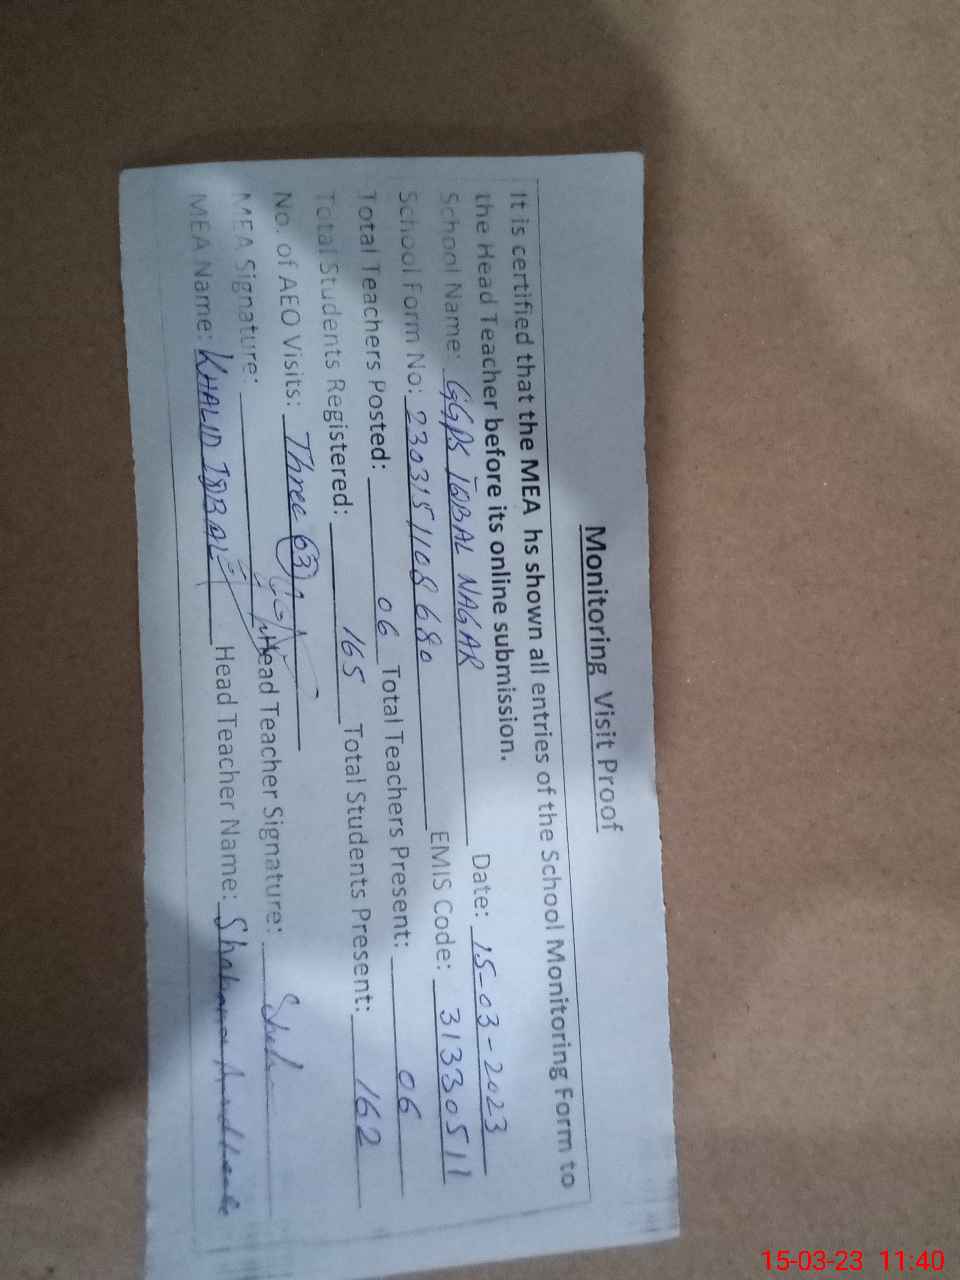 Monitoring Visit Proof
It is certified that the MEA hs shown all entries of the School Monitoring Form to
the Head Teacher before its online submission.
School Name: GGPS IQBAL NAGAR Date: 15-03-2023
School Form No: 2303151108680 EMIS Code: 31330511
Total Teachers Posted: 06 Total Teachers Present: 06
Total Students Registered: 165 Total Students Present: 162
No. of AEO Visits: Three (03)
MEA Signature: Head Teacher Signature:
MEA Name: KHALID IQBAL Head Teacher Name:
15-03-23 11:40